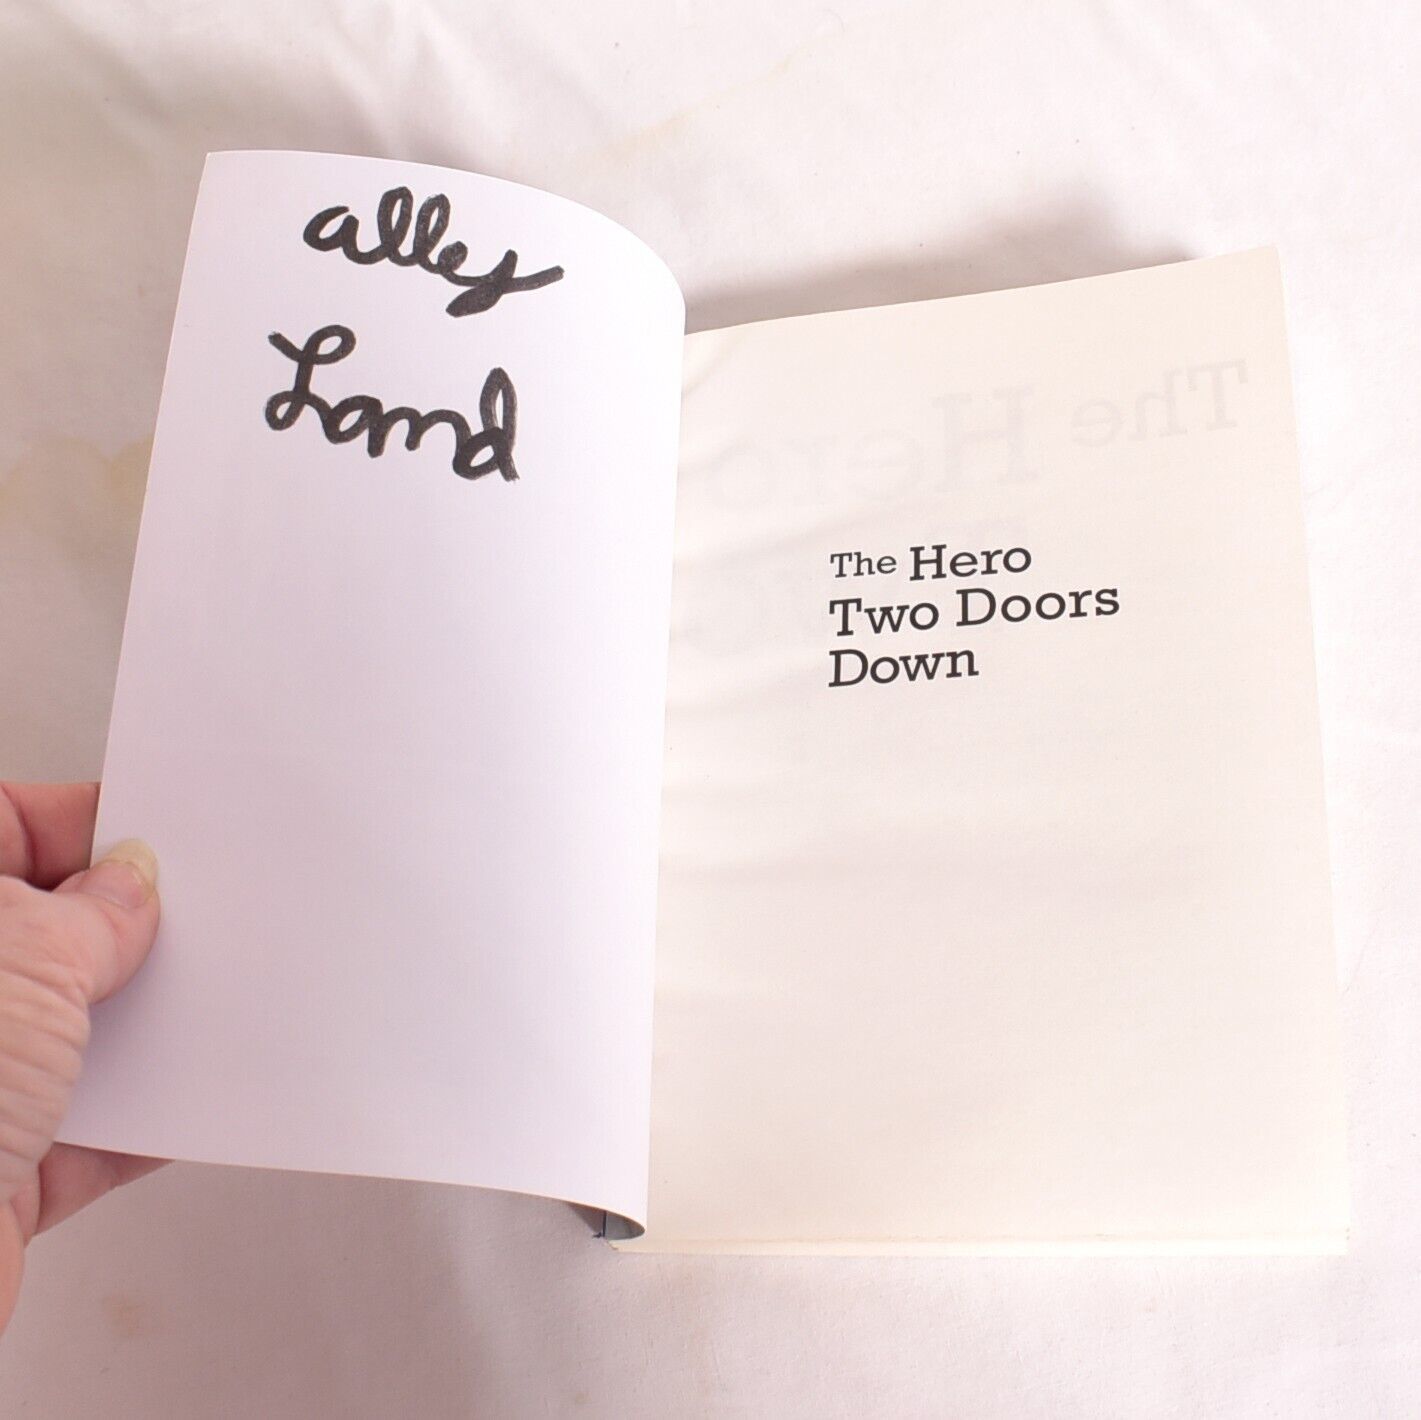 alley
Land
The Hero
Two Doors
Down
The Hero